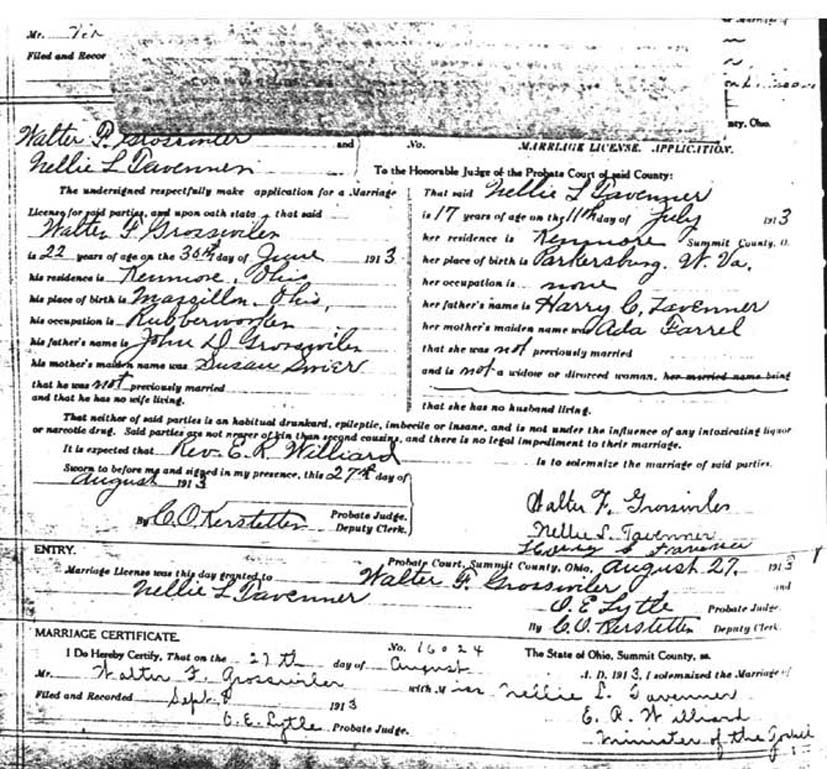 Mr.
Filed and Recor
nty, Ohio.
Walter P. Grosswiler and
Nellie L Tavenner
No. MARRIAGE LICENSE. APPLICATION.
To the Honorable Judge of the Probate Court of said County:
The undersigned respectfully make application for a Marriage
License for said parties, and upon oath state, that said
Walter F Grosswiler
is 22 years of age on the 30th day of June 1913
his residence is Kenmore, Ohio
his place of birth is Massillon, Ohio,
his occupation is Rubberworker
his father's name is John D Grosswiler
his mother's maiden name was Susan Swier
that he was not previously married
and that he has no wife living.
That said Nellie L Tavenner
is 17 years of age on the 11th day of July 1913
her residence is Kenmore Summit County, O.
her place of birth is Parkersburg, W. Va.
her occupation is none
her father's name is Harry C. Tavenner
her mother's maiden name was Ada Farrel
that she was not previously married
and is not a widow or divorced woman, her married name being
that she has no husband living.
That neither of said parties is an habitual drunkard, epileptic, imbecile or insane, and is not under the influence of any intoxicating liquor
or narcotic drug. Said parties are not nearer of kin than second cousins, and there is no legal impediment to their marriage.
It is expected that Rev. E. R. Williard is to solemnize the marriage of said parties.
Sworn to before me and signed in my presence, this 27th day of
August 1913
Probate Judge.
By C.O. Kerstetter Deputy Clerk.
Walter F. Grosswiler
Nellie L. Tavenner
ENTRY.
Probate Court, Summit County, Ohio, August 27, 1913
Marriage License was this day granted to Walter F. Grosswiler and
Nellie L Tavenner
O. E Lytle Probate Judge.
By C.O. Kerstetter Deputy Clerk.
MARRIAGE CERTIFICATE.
No. 16024 The State of Ohio, Summit County, ss.
I Do Hereby Certify, That on the 27th day of August A. D. 1913, I solemnized the Marriage of
Mr. Walter F. Grosswiler with Miss Nellie L. Tavenner
Filed and Recorded Sept. 8 1913
E. R. Williard
O. E. Lytle Probate Judge.
Minister of the Gospel